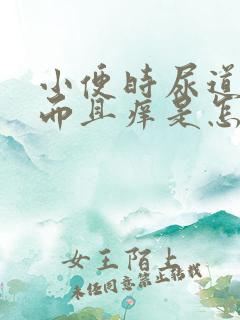 小便时尿道
而且痒是怎
女王陌上
未经同意禁止转载